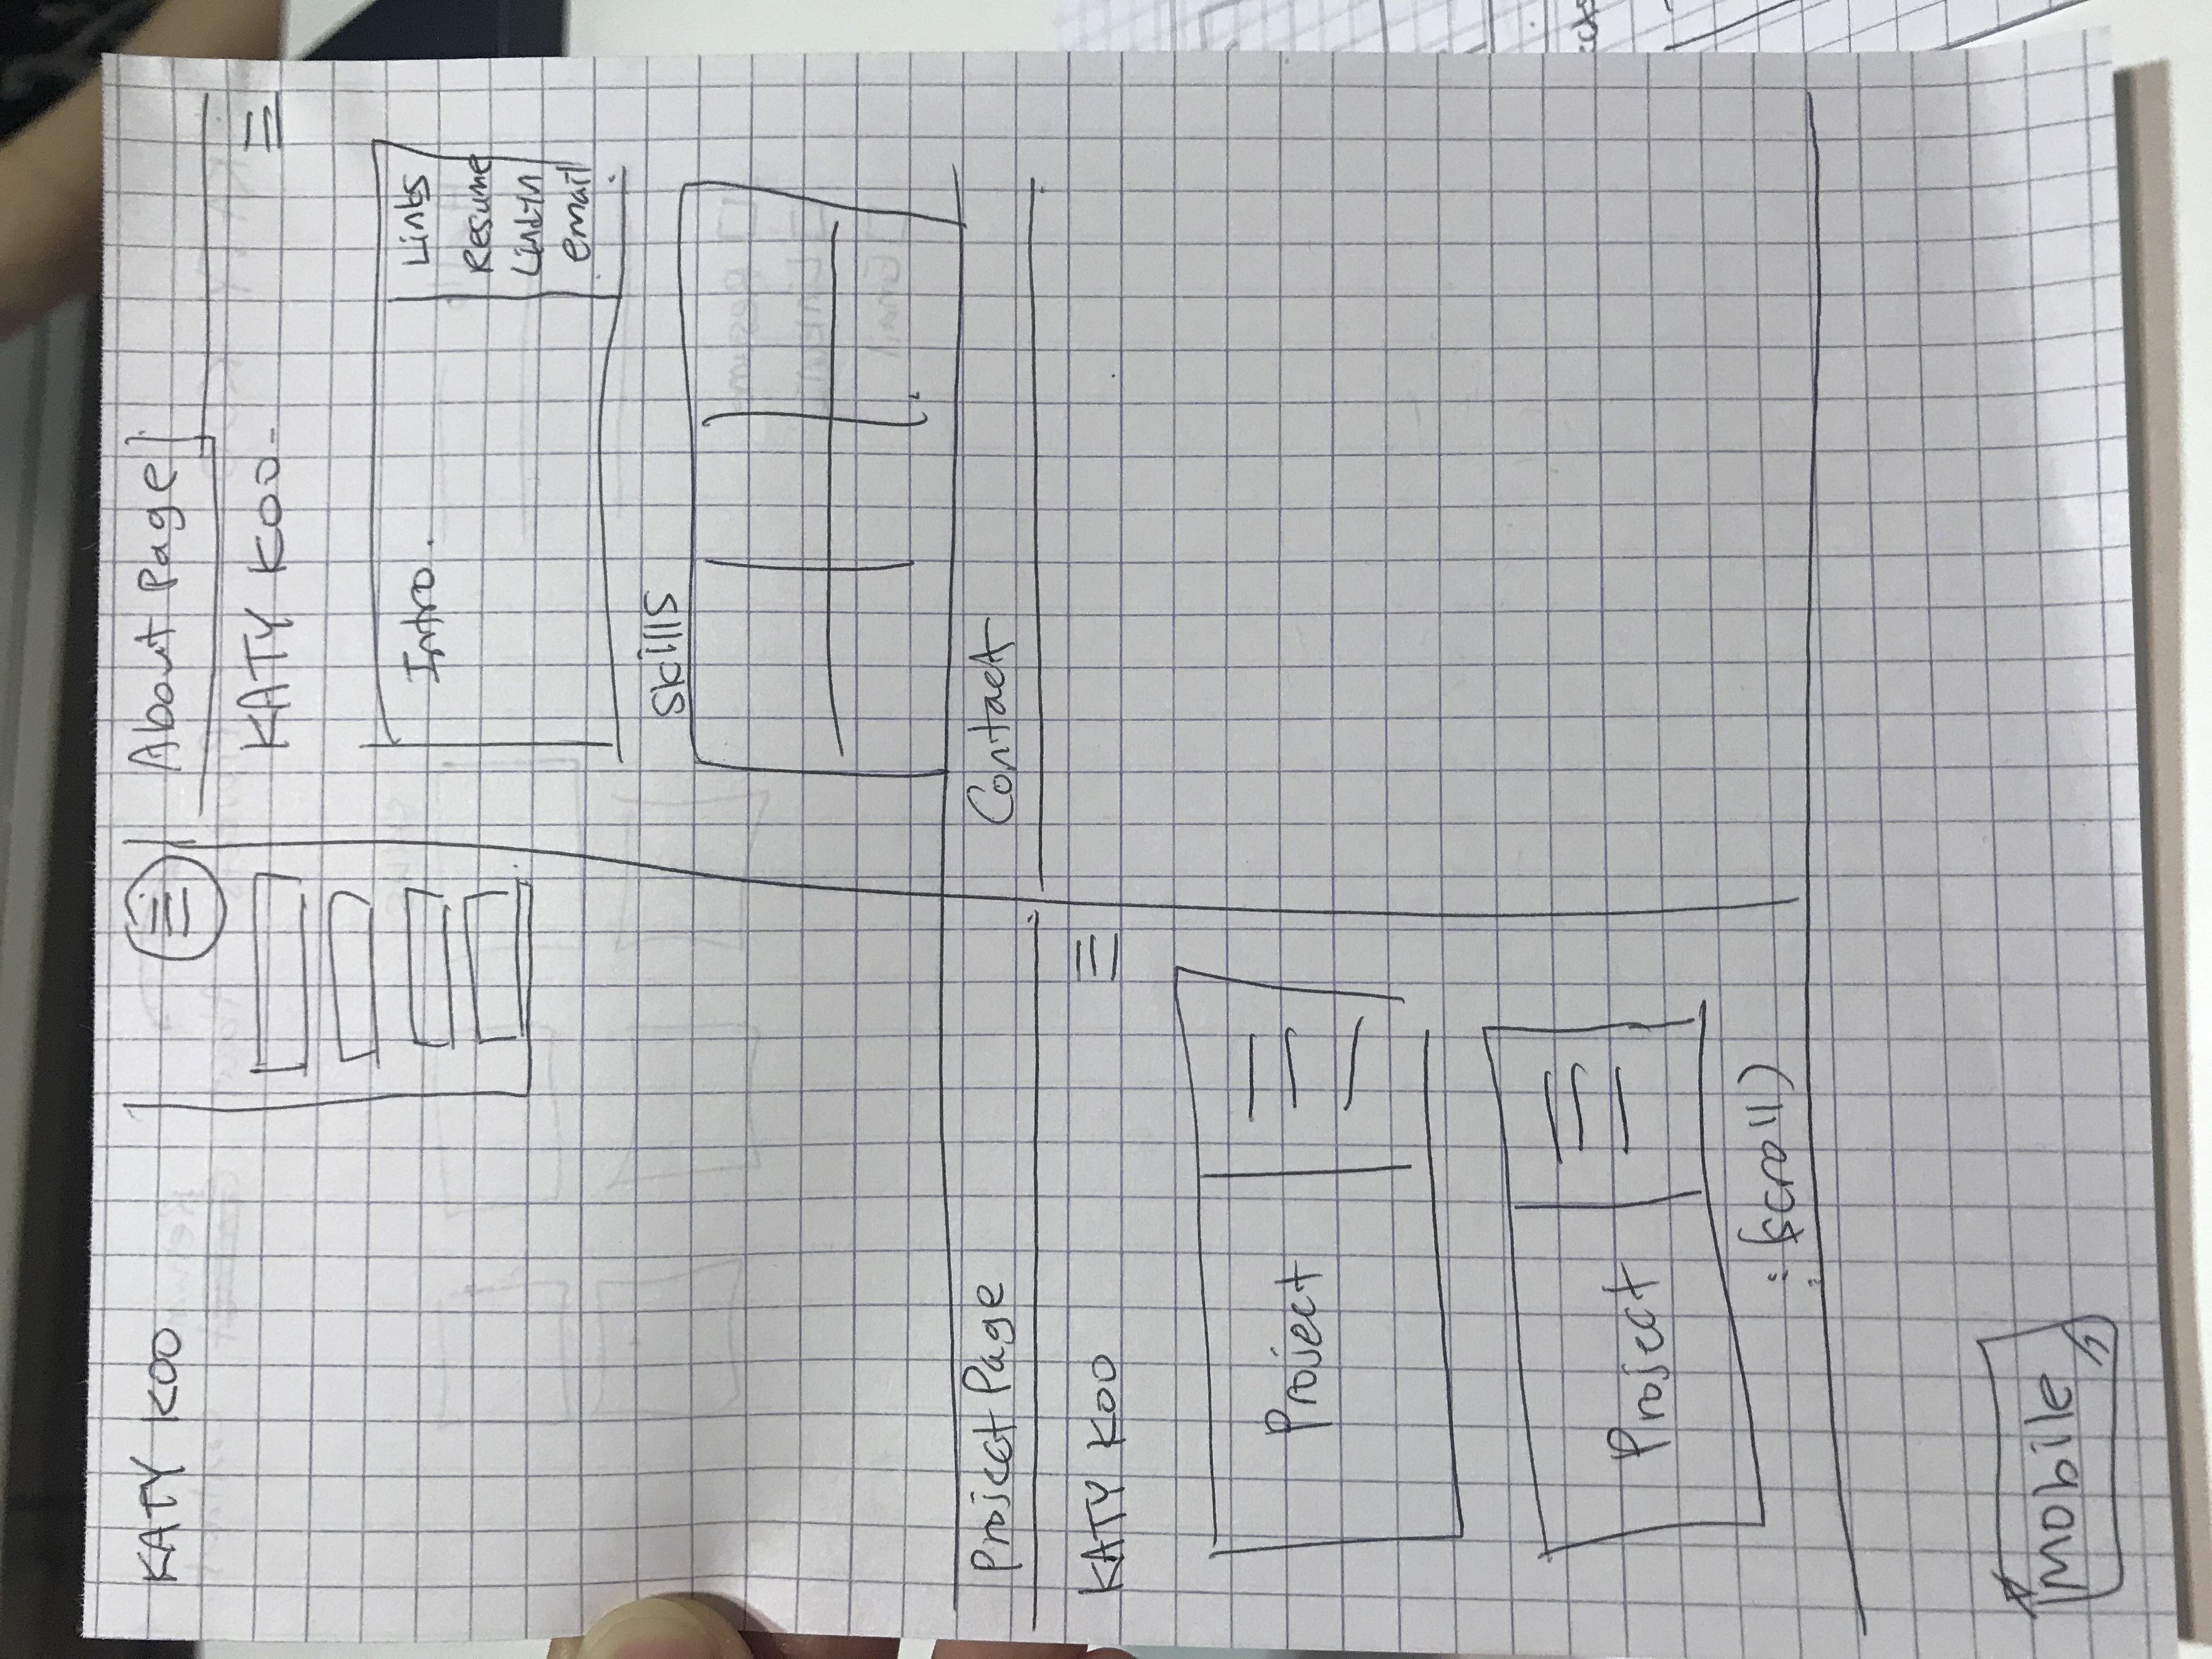 KATY KOO
About Page
KATY KOO
Intro.
Links
Resume
Lind-in
email
Skills
Project Page
KATY KOO
Project
Project
: (scroll)
Contact
Mobile